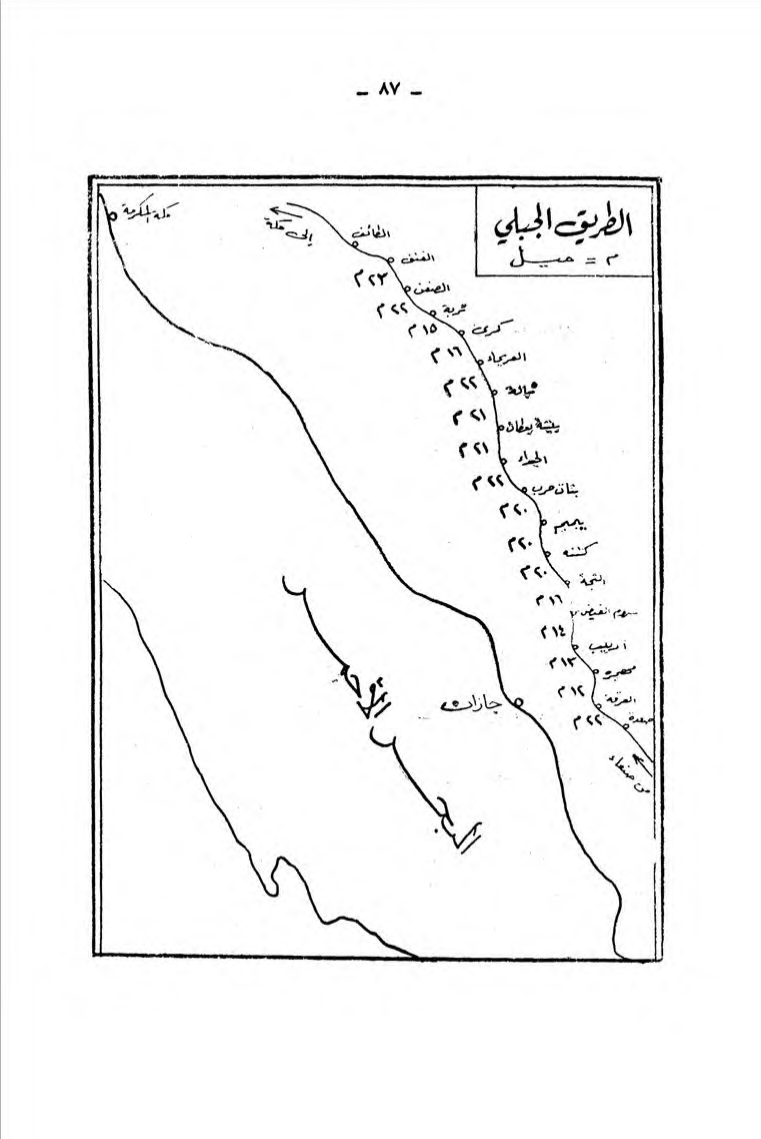 - ٨٧ -
الطريق الجبلي
م = ميل
مكة المكرمة
إلى مكة
الطائف
الفتق
٢٣م
الصفن
٢٢م
تربة
١٥م
كرى
١٦م
العريجاء
٢٢م
تبالة
٢١م
بيشة بعطان
٢١م
الجسداء
٢٢م
بنات حرب
٢٠م
يبمبم
٢٠م
كتنه
٢٠م
الثجة
١٦م
سروم الفيض
١٤م
١٣م
مهجرة
١٢م
العرقة
٢٢م
صعدة
من صنعاء
جازان
البحر الأحمر